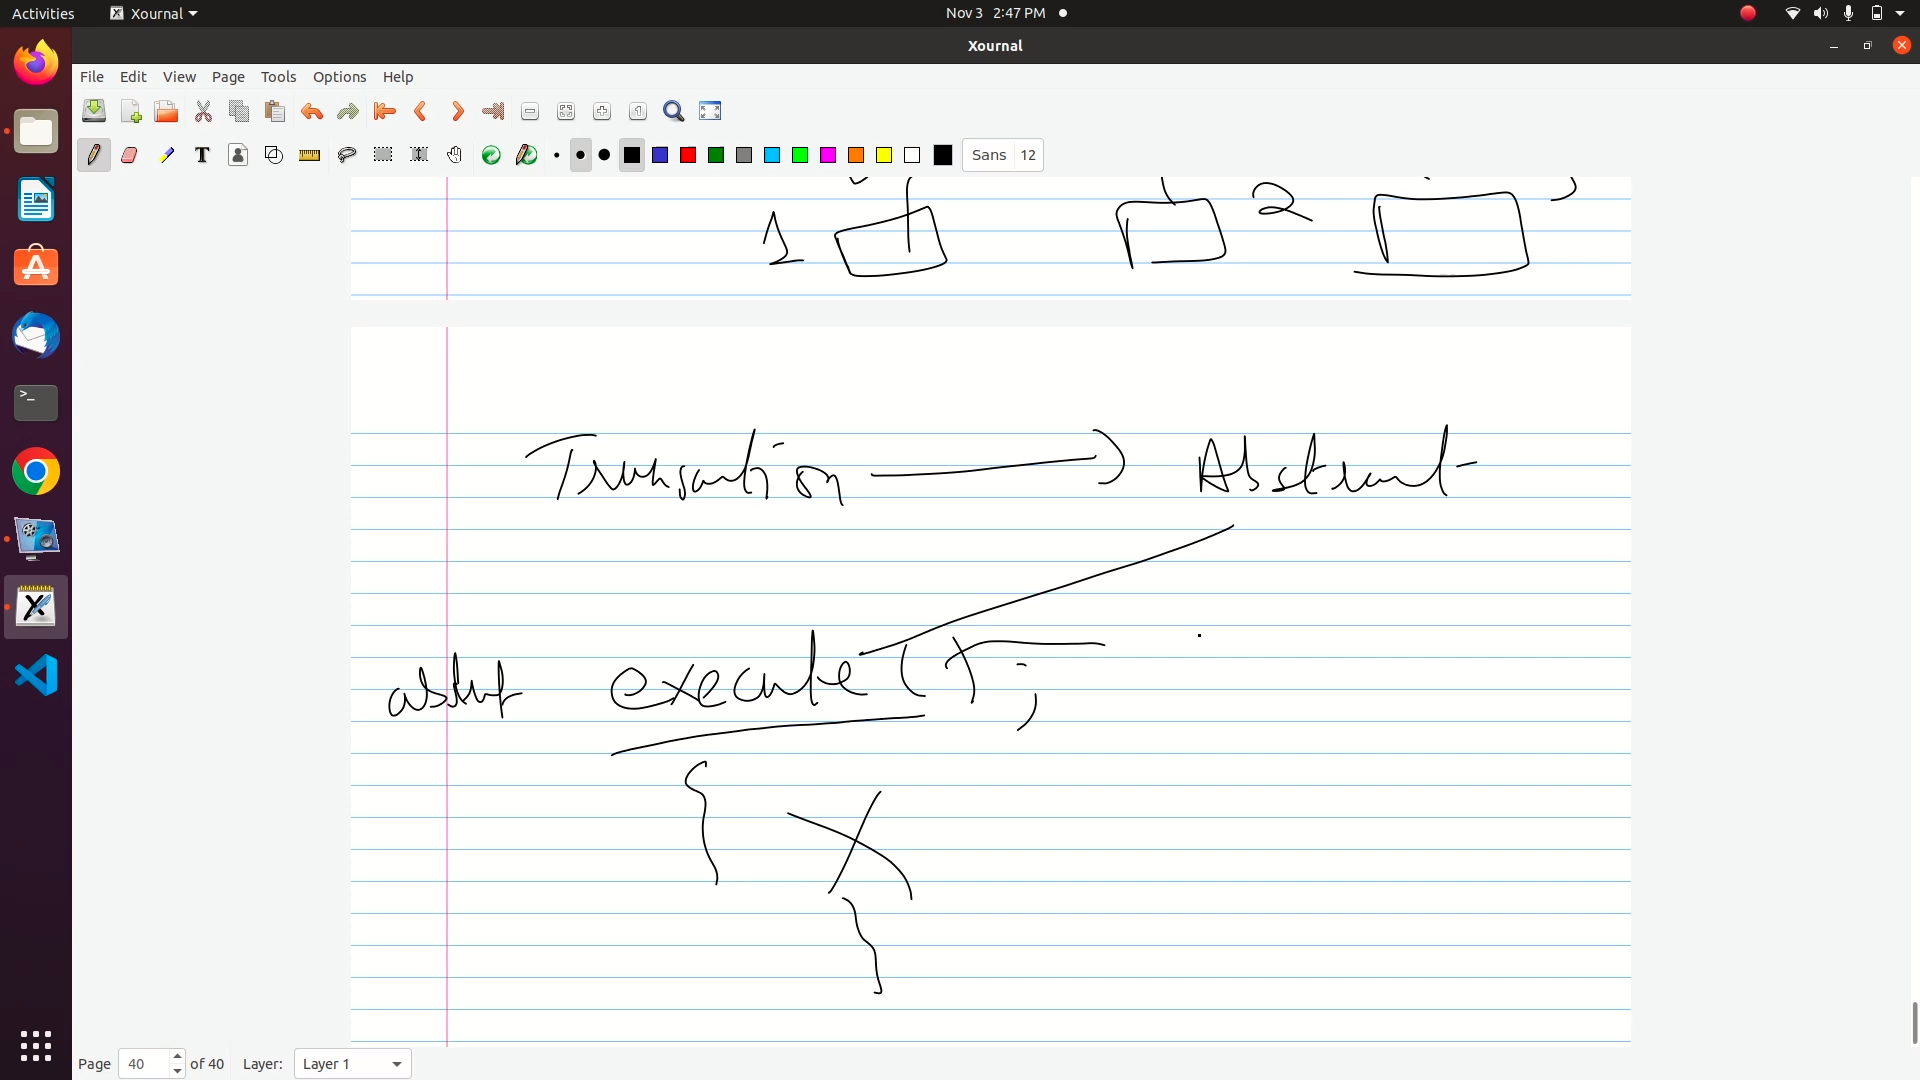 Activities Xournal Nov 3 2:47 PM
Xournal
File Edit View Page Tools Options Help
Sans 12
1 2
Transaction Abstract
execute ( ) ;
{ X
}
Page 40 of 40 Layer: Layer 1